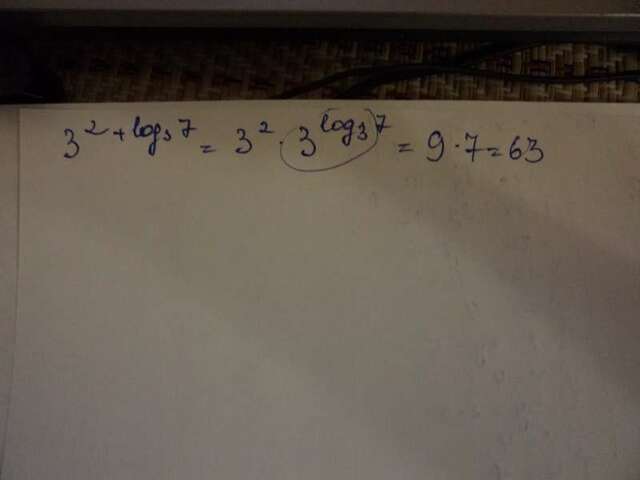 3^{2+log_3 7} = 3^2 · 3^{log_3 7} = 9 · 7 = 63